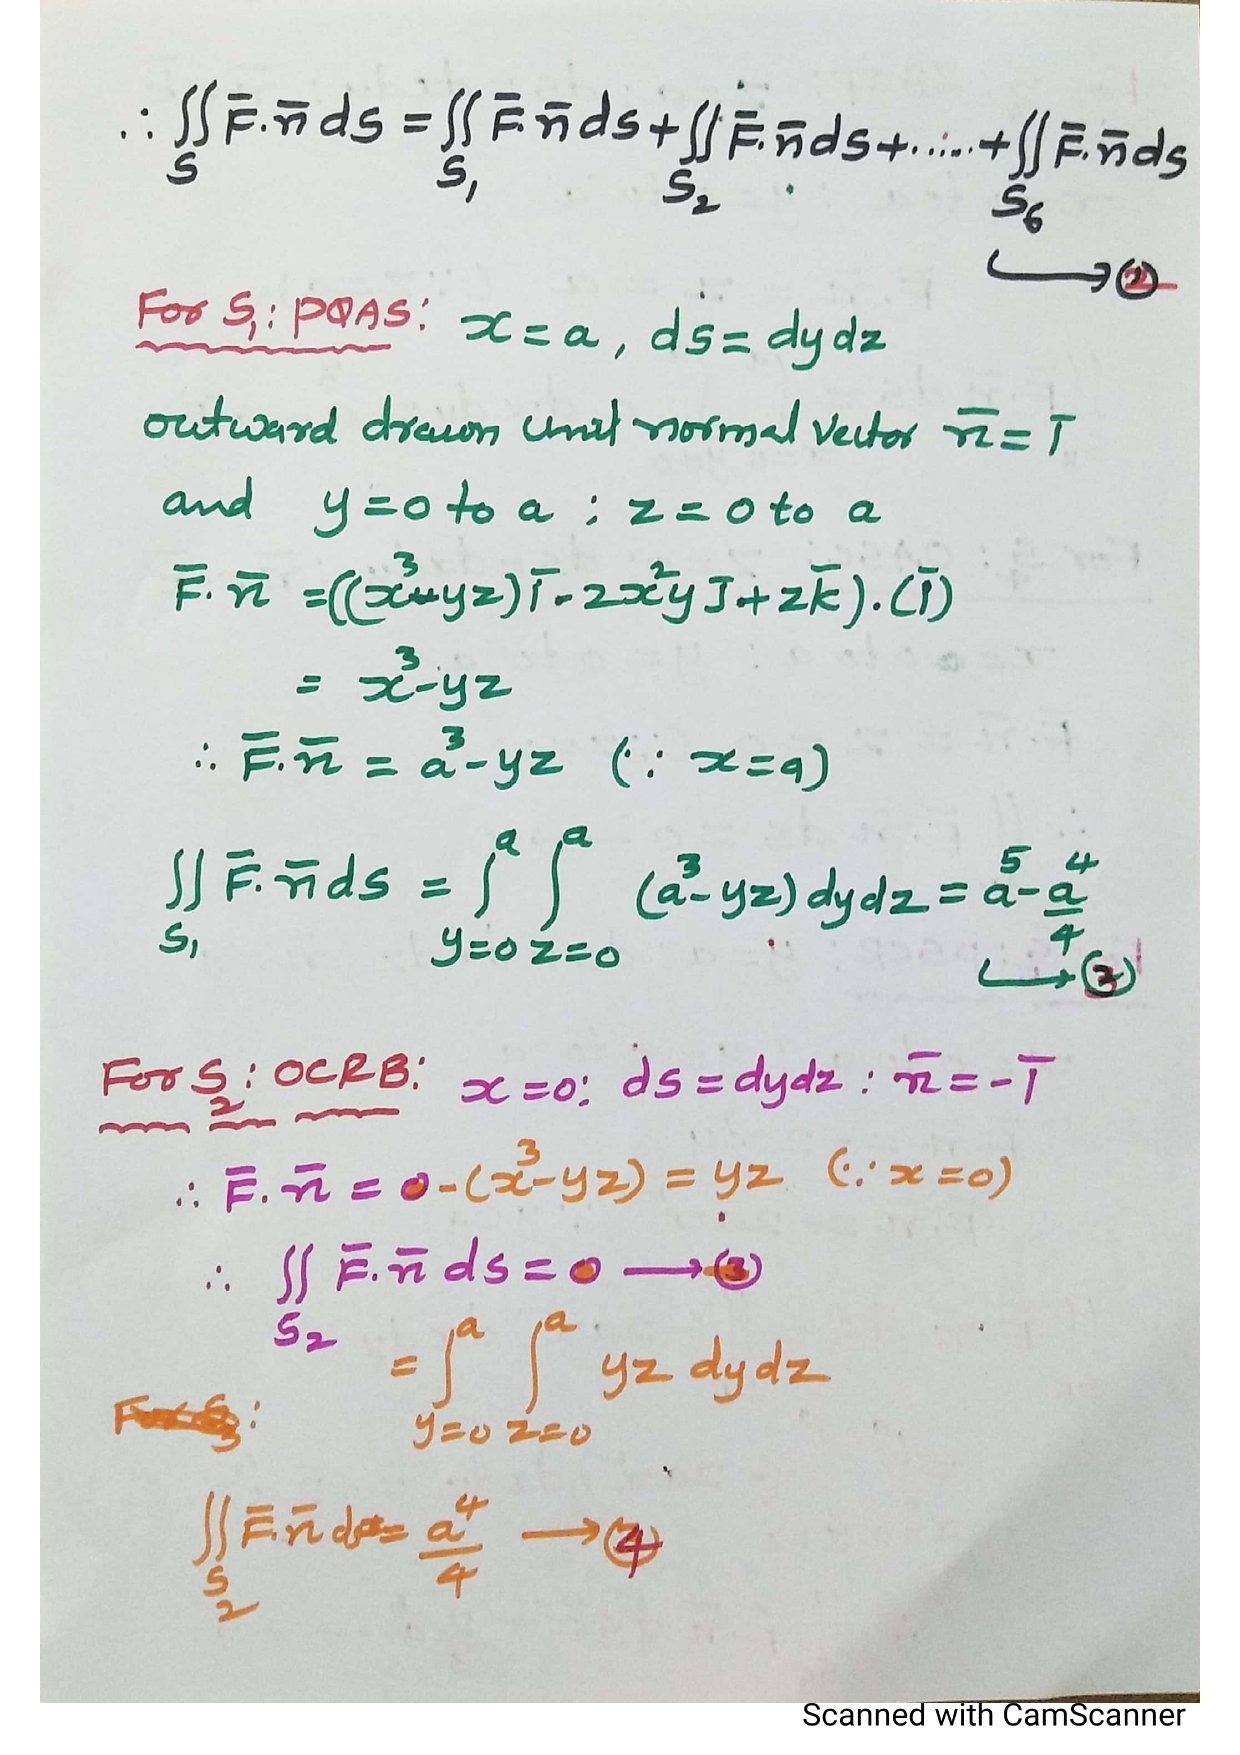 ∴ ∬ F̄.n̄ ds = ∬ F̄.n̄ ds + ∬ F̄.n̄ ds + ..... + ∬ F̄.n̄ ds
S S₁ S₂ S₆
→ (2)
For S₁: PQAS: x = a, ds = dy dz
outward drawn unit normal vector n̄ = ī
and y = 0 to a : z = 0 to a
F̄.n̄ = ((x³-yz)ī - 2x²y J + z k̄).(ī)
= x³-yz
∴ F̄.n̄ = a³-yz (∵ x = a)
∬ F̄.n̄ ds = ∫ᵃ ∫ᵃ (a³-yz) dy dz = a⁵ - a⁴/4
S₁ y=0 z=0
→ (3)
For S₂: OCRB: x = 0: ds = dy dz : n̄ = -ī
∴ F̄.n̄ = 0 - (x³-yz) = yz (∵ x = 0)
∴ ∬ F̄.n̄ ds = 0 → (3)
S₂
= ∫ᵃ ∫ᵃ yz dy dz
y=0 z=0
∬ F̄.n̄ ds = a⁴/4 → (4)
S₂
Scanned with CamScanner